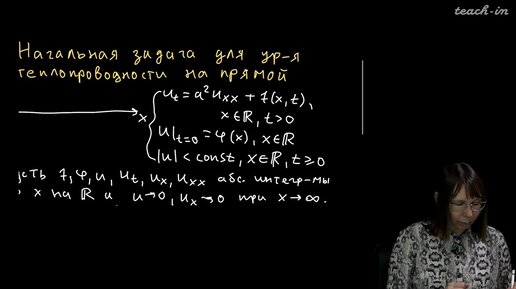 teach-in
Начальная задача для ур-я
теплопроводности на прямой
x
u_t = a²u_xx + f(x,t),
x∈ℝ, t>0
u|_{t=0} = φ(x), x∈ℝ
|u| < const, x∈ℝ, t≥0
усть f, φ, u, u_t, u_x, u_xx абс. интегр-мы
о x на ℝ и u→0, u_x→0 при x→∞.